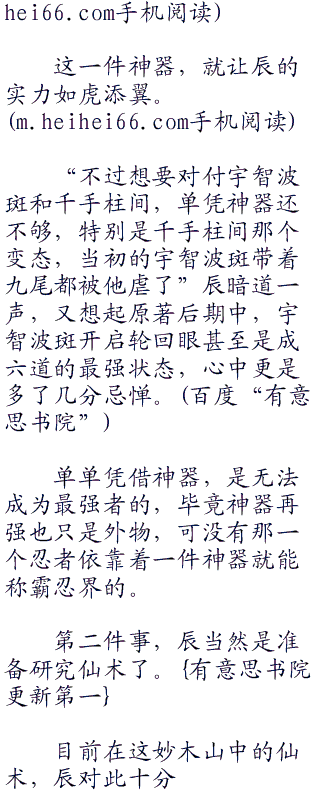 hei66.com手机阅读)
这一件神器，就让辰的
实力如虎添翼。
(m.heihei66.com手机阅读)
“不过想要对付宇智波
斑和千手柱间，单凭神器还
不够，特别是千手柱间那个
变态，当初的宇智波斑带着
九尾都被他虐了”辰暗道一
声，又想起原著后期中，宇
智波斑开启轮回眼甚至是成
六道的最强状态，心中更是
多了几分忌惮。(百度“有意
思书院”)
单单凭借神器，是无法
成为最强者的，毕竟神器再
强也只是外物，可没有那一
个忍者依靠着一件神器就能
称霸忍界的。
第二件事，辰当然是准
备研究仙术了。{有意思书院
更新第一}
目前在这妙木山中的仙
术，辰对此十分